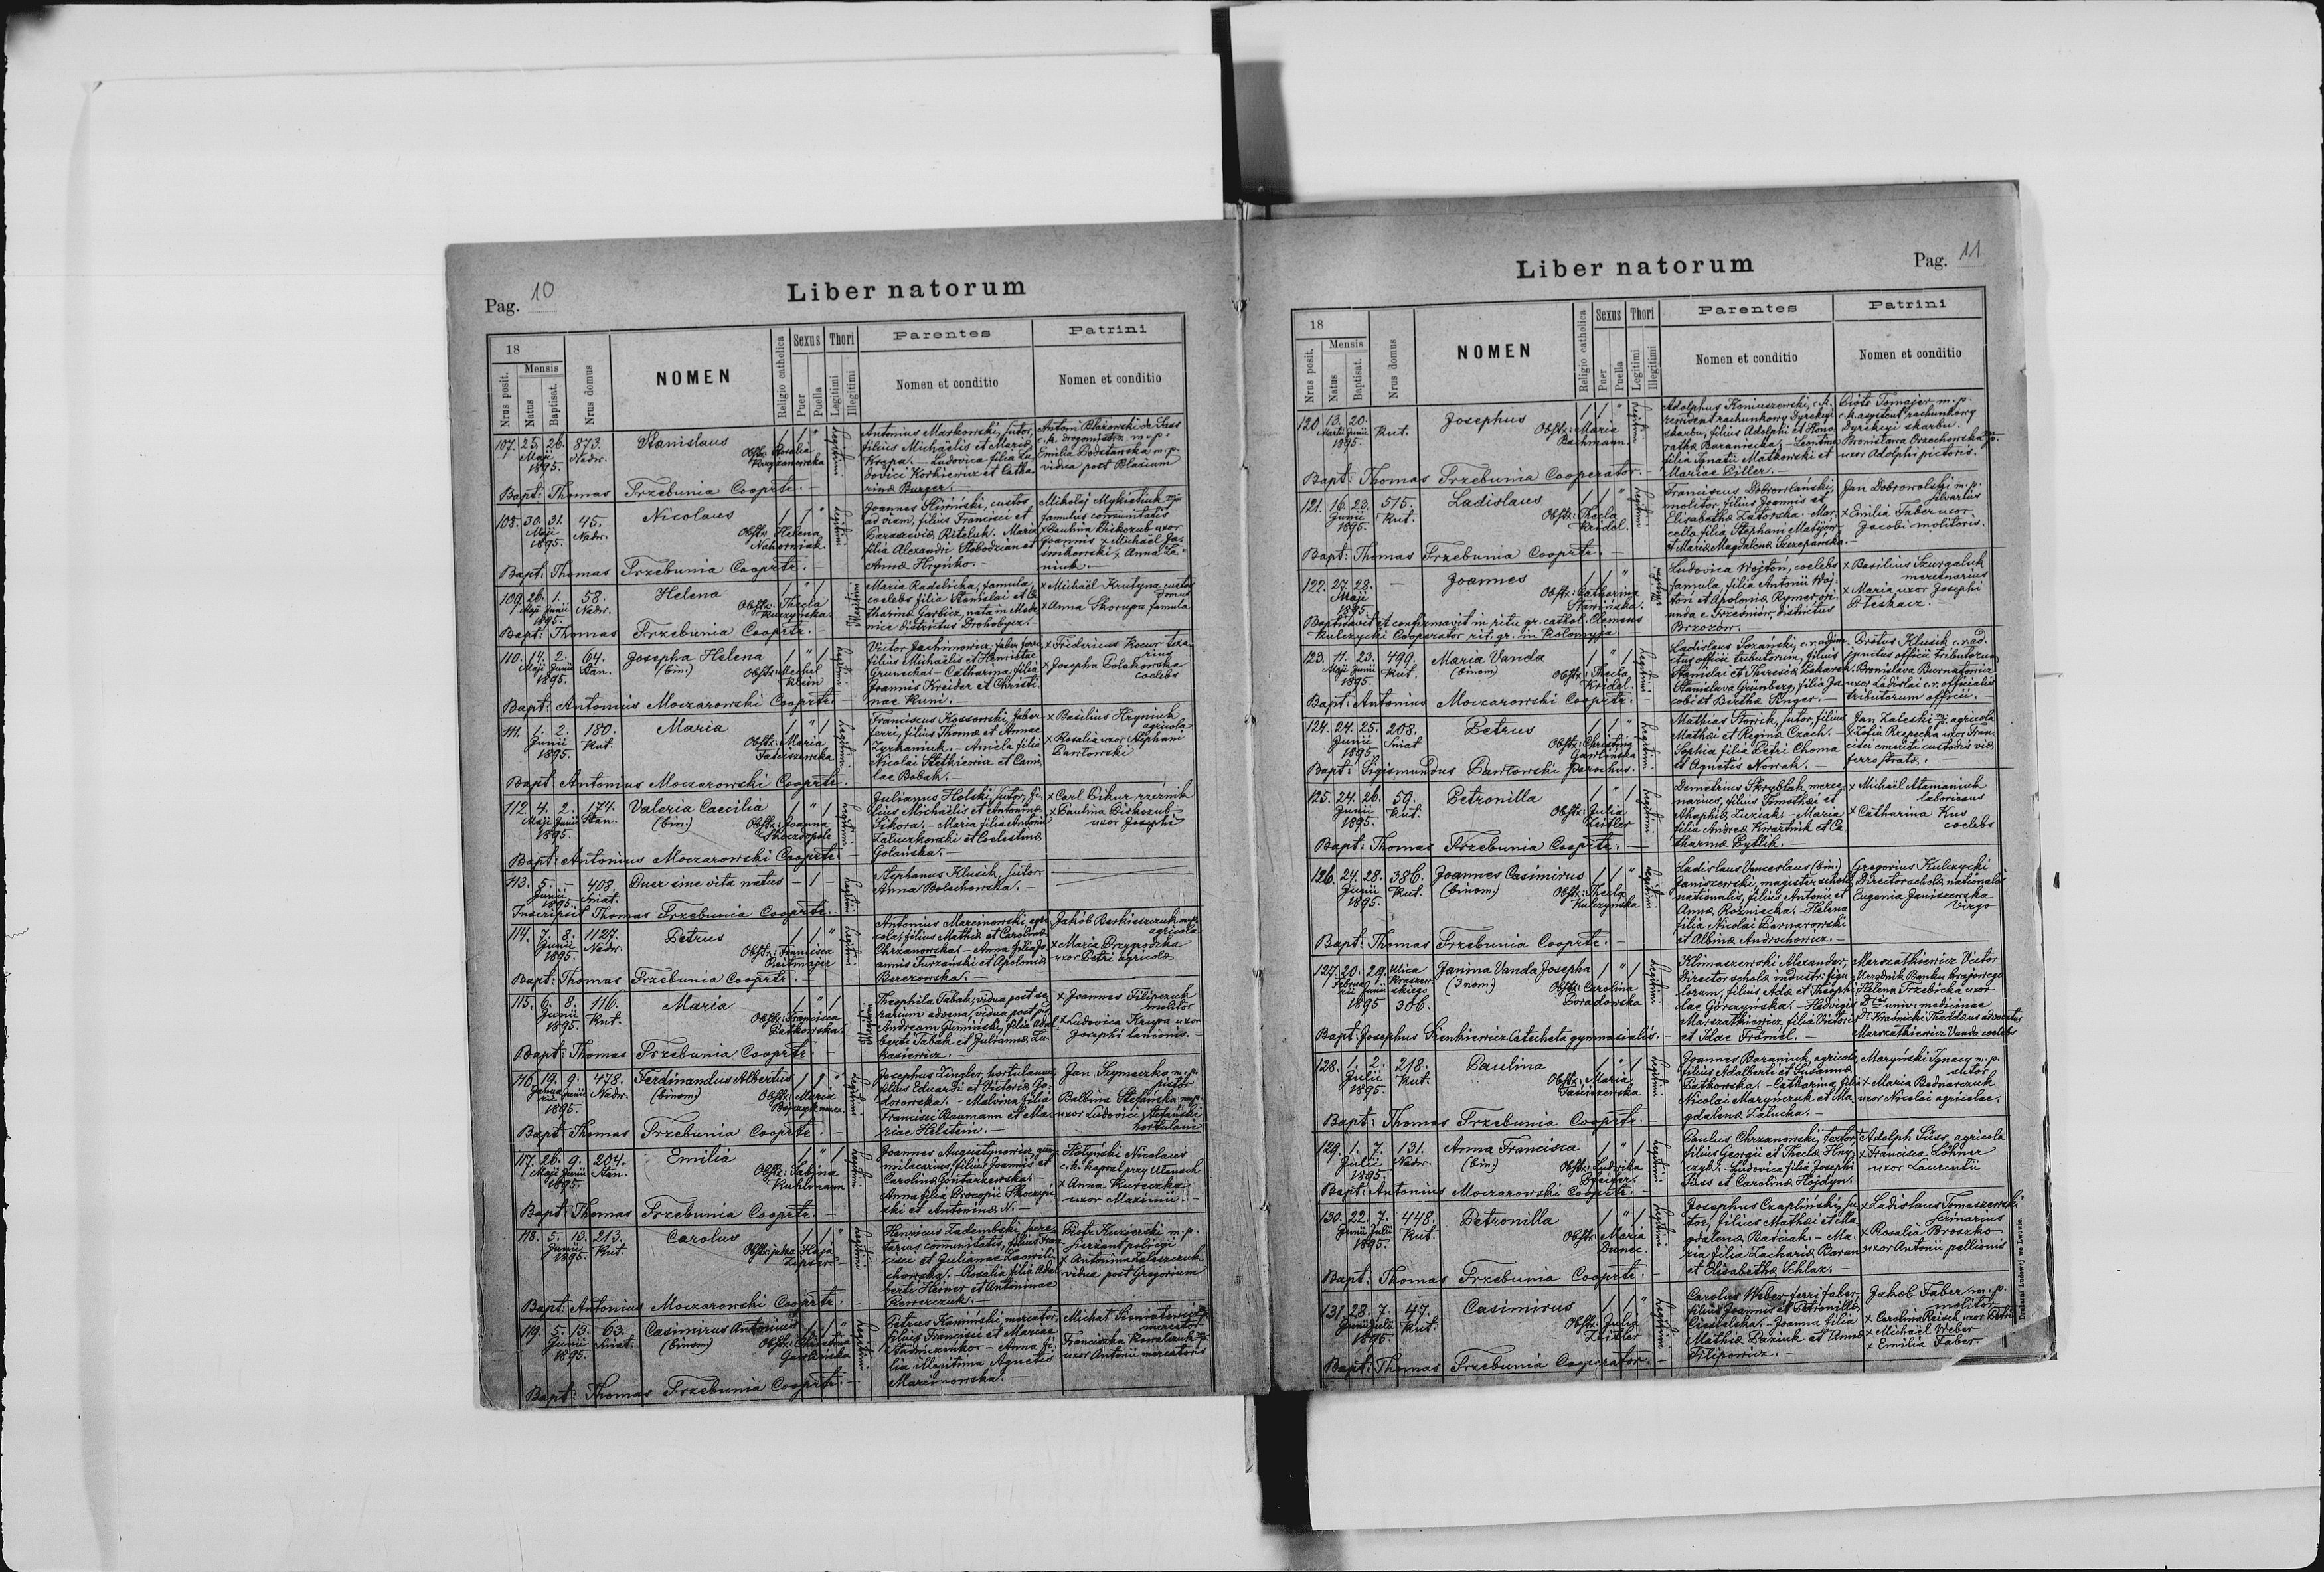 Pag. 10
Liber natorum
18
Mensis
Nrus posit.
Natus
Baptisat.
Nrus domus
NOMEN
Religio catholica
Sexus
Puer
Puella
Thori
Legitimi
Illegitimi
Parentes
Nomen et conditio
Patrini
Nomen et conditio
107. 25. 26. 873.
Maji Nadw.
1895.
Stanislaus
Obstr: Rosalia
Krzyżanowska
legitimi
Antonius Markowski, sutor,
filius Michaëlis et Mariæ
Krępa. – Ludovica filia Lu-
dovici Korkiewicz et Catha-
rinæ Burger. –
Antoni Błażowski de Sass
c.k. m. p.
Emilia m. p.
vidua post Blasium
Bapt: Thomas Trzebunia Cooprtr. –
108. 30. 31. 45.
Maji Nadw.
1895.
Nicolaus
Obstr: Helena
Nahorniak
legitimi
Joannes Śliwiński, custos
ad viam, filius Francisci et
Paraszeviæ Reteluk. Maria
filia Alexandri Słobodzian et
Annæ Hryńko. –
Mikołaj Mykietiuk mp
famulus communitatis
x Paulina Piskozub uxor
Joannis x Michaël Ja-
śnikowski, x Anna
niuk. –
Bapt: Thomas Trzebunia Cooprtr. –
109. 26. 1. 58.
Maji Junii Nadw.
1895.
Helena
Obstr: Thecla
Kulczyńska
illegitimi
Maria Radelicka, famula,
coelebs filia Stanislai et Ca-
tharinæ Garbicz, nata in Mede-
nice districtus Drohobycz. –
x Michaël Krutyna custos
domus
x Anna Skorupa famula
Bapt: Thomas Trzebunia Cooprtr. –
110. 14. 2. 64.
Maji Junii Stan.
1895.
Josepha Helena
(bin:)
Obstr: Rechel
Klein
legitimi
Victor Jachimowicz, faber ferri,
filius Michaëlis et Henriettae
Grunecka. – Catharina, filia
Joannis Kreider et Christi-
nae Kuni. –
x Fridericus Kocur
x Josepha Polakowska
coelebs
Bapt: Antonius Moczarowski Cooprtr. –
111. 1. 2. 180.
Junii Kut.
1895.
Maria
Obstr: Maria
Faściszewska
legitimi
Franciscus Kossowski, faber
ferri, filius Thomæ et Annae
Zyrhaniuk. – Aniela filia
Nicolai Stetkiewicz et Cami-
lae Bobak. –
x Basilius Hryniuk
agricola
x Rosalia uxor Stephani
Pawłowski
Bapt: Antonius Moczarowski Cooprtr. –
112. 4. 2. 174.
Maji Junii Stan.
1895.
Valeria Caecilia
(bin:)
Obstr: Joanna
Skoczopole
legitimi
Julianus Holski, sutor, fi-
lius Michaëlis et Antoninæ
Sikora. – Maria filia Antonii
Załuczkowski et Coelestinæ
Golańska. –
x Carl Pikur rzeźnik
x Paulina Piskozub
uxor Josephi
Bapt: Antonius Moczarowski Cooprtr –
113. 5. – 408.
Junii Śniat.
1895.
Puer sine vita natus
legitimi
Stephanus Klusik, sutor.
Anna Bolachowska. –
Inscripsit Thomas Trzebunia Cooprtr. –
114. 7. 8. 1127.
Junii Nadw.
1895.
Petrus
Obstr: Francisca
Reitmajer
legitimi
Antonius Marcinowski, agri-
cola, filius Mathiæ et Carolinæ
Chrzanowska. – Anna filia Jo-
annis Turzański et Apoloniæ
Berezowska. –
Jakób Berkieszczuk mp.
agricola
x Maria Przygrodzka
uxor Petri agricolæ
Bapt: Thomas Trzebunia Cooprtr. –
115. 6. 8. 116.
Junii Kut.
1895.
Maria
Obstr: Francisca
Patkowska.
illegitimi
Theophila Tabak, vidua post
advena, vidua post
Andream Gumiński, filia Adal-
berti Tabak et Juliannæ Łu-
kasiewicz. –
x Joannes Filipczuk
molitor
x Ludovica Krupa uxor
Josephi lanionis. –
Bapt: Thomas Trzebunia Cooprtr. –
116. 19. 9. 478.
Janua- Junii Nadw.
rii 1895.
Ferdinandus Albertus
(binom)
Obstr: Maria
legitimi
Josephus Zingler, hortulanus,
filius Eduardi et Victoriæ Go-
dorowska. – Malvina filia
Francisci Baumann et Ma-
riae Helstein. –
Jan Szymeczko m. p.
pistor
Balbina Stefańska m. p.
uxor Ludovici Stefański
hortulani
Bapt: Thomas Trzebunia Cooprtr. –
117. 26. 9. 204.
Maji Junii Stan.
1895.
Emilia
Obstr: Sabina
Kuhlmann
legitimi
Joannes Augustynowicz,
filius Joannis et
Carolinæ Gontarzewska. –
Anna filia Procopii Skoczyń-
ski et Antoninæ N. –
Hołyński Nicolaus
c. k. kapral przy Ułanach
x Anna Kureczka
uxor Maximi. –
Bapt: Thomas Trzebunia Cooprtr. –
118. 5. 13. 213.
Junii Kut.
1895.
Carolus
Obstr: judea Haja
Lipser –
legitimi
Henricus Zadembski,
communitatis, filius Fran-
cisci et Julianæ
chowska. – Rosalia filia Adal-
berti Heimer et Antoninae
Rewerczuk. –
Piotr Kuzierski m. p.
sierżant policyi
x Antonina Zaleszczuk
vidua post Gregorium
Bapt: Antonius Moczarowski Cooprtr. –
119. 5. 13. 63.
Junii Śniat.
1895.
Casimirus Antonius
(binom)
Obstr: Christina
Gawlińska
legitimi
Petrus Kamiński, mercator,
filius Francisci et Mariae
Stadniczenko – Anna fi-
lia illegitima Agnetis
Marcinowska. –
Michał Simiatowicz
mercator
Franciszka Kowalczuk
uxor Antonii mercatoris
Bapt: Thomas Trzebunia Cooprtr. –
Liber natorum
Pag. 11
18
Mensis
Nrus posit.
Natus
Baptisat.
Nrus domus
NOMEN
Religio catholica
Sexus
Puer
Puella
Thori
Legitimi
Illegitimi
Parentes
Nomen et conditio
Patrini
Nomen et conditio
120. 13. 20.
Martii Junii Kut.
1895.
Josephus
Obstr: Maria
Bachmann.
legitimi
Adolphus Koniuszewski, c.k.
rezydent rachunkowy Dyrekcyi
skarbu, filius Adolphi et Hono-
rathæ Baraniecka, – Leontina
filia Ignatii Matkowski et
Mariae Piller. –
Piotr Tomajer m. p.
c.k. asystent rachunkowy
Dyrekcyi skarbu.
Bronisława Orzechowska m. p.
uxor Adolphi pictoris.
Bapt: Thomas Trzebunia Cooperator. –
121. 16. 23. 515.
Junii Kut.
1895.
Ladislaus
Obstr: Thecla
Kridel.
legitimi
Franciscus Dobrowlański,
molitor, filius Joannis et
Elisabethæ Zatorska. Mar-
cella filia Stephani Matyjów
et Mariæ Magdalenæ Szczepańska. –
Jan Dobrowolski m. p.
silvarius
x Emilia Faber uxor
Jacobi molitoris.
Bapt: Thomas Trzebunia Cooprtr. –
122. 27. 28. –
Maji
1895.
Joannes
Obstr: Catharina
Stawińska.
illegitimi
Ludovica Wojtoń, coelebs
famula, filia Antonii Woj-
toń et Apoloniæ Rymer, ori-
unda e Trześniów, districtus
Brzozów.
x Basilius Szurgaluk
mercenarius
x Maria uxor Josephi
Pleskacz. –
Baptisavit et confirmavit in ritu gr. cathol. Clemens
Kulczycki Cooperator rit. gr. in Kolomyja
123. 11. 23. 499.
Maji Junii Kut.
1895.
Maria Vanda
(binom)
Obstr: Thecla
Kridel.
legitimi
Ladislaus Łoziński, c. r. adjun-
ctus officii tributorum, filius
Stanislai et Theresiæ Piekarek.
Stanislava Grünberg, filia Ja-
cobi et Berthæ Singer. –
Protus Klusik c. r. ad-
junctus officii tributorum
Bronislava Biernatowicz
uxor Ladislai c. r. officialis
tributorum officii. –
Bapt: Antonius Moczarowski Cooprtr. –
124. 24. 25. 208.
Junii Śniat
1895.
Petrus
Obstr: Christina
Gawlińska
legitimi
Mathias Słowik, sutor, filius
Mathæi et Reginæ Czach. –
Sophia filia Petri Choma
et Agnetis Nowak. –
Jan Zaleski m. p. agricola
x Zofia Rzepecka uxor Fran-
cisci emeriti custodis viæ
ferro stratæ. –
Bapt: Sigismundus Pawłowski Parochus. –
125. 24. 26. 59.
Junii Kut.
1895.
Petronilla
Obstr: Julia
Zeitler
legitimi
Demetrius Skryblak, merce-
narius, filius Timothæi et
Ahaphiæ Luziak. – Maria
filia Andreæ Kwartnik et Ca-
tharinæ Pydlik. –
x Michaël Atamaniuk
laboriosus
x Catharina Kus
coelebs
Bapt: Thomas Trzebunia Cooprtr. –
126. 24. 28. 386.
Junii Kut.
1895.
Joannes Casimirus
(binom)
Obstr: Thecla
Kulczyńska
legitimi
Ladislaus Venceslaus (bin:)
Janiszewski, magister scholæ
nationalis, filius Antonii et
Annæ Rożniecka. – Helena
filia Nicolai Bernarowski
et Albinæ Androchowicz. –
Gregorius Kulczycki
Director scholæ nationalis
Eugenia Janiszewska
virgo
Bapt: Thomas Trzebunia Cooprtr. –
127. 20. 29. Ulica
Februa- Junii Kraszew-
rii skiego
1895 386.
Janina Vanda Josepha
(3 nom)
Obstr: Carolina
Poradowska
legitimi
Klimaszewski Alexander,
Director scholæ industr: figu-
lorum, filius Adæ et Theophi-
lae Górczyńska. – Hedvigis
Marszałkiewicz, filia Victoris
et Idae Frömel. –
Marszałkiewicz Victor
Urzędnik Banku krajowego
Helena Trzebicka uxor
Dris univ: medicinae
Dr Kraśnicki Thaddæus advocatus
Marszałkiewicz Vanda coelebs
Bapt: Josephus Sienkiewicz Catecheta gymnasialis. –
128. 1. 2. 218.
Julii Kut.
1895.
Paulina
Obstr: Maria
Faściszewska
legitimi
Joannes Baraniuk, agricola,
filius Adalberti et Susannæ
Patkowska. – Catharina filia
Nicolai Maryńczuk et Ma-
gdalenæ Załucka. –
Maryński Ignacy m. p.
sutor
x Maria Bednarczuk
uxor Nicolai agricolae.
Bapt: Thomas Trzebunia Cooprtr. –
129. 1. 7. 131.
Julii Nadw.
1895.
Anna Francisca
(bin:)
Obstr: Ludwika
Pfeifer.
legitimi
Paulus Chrzanowski, textor,
filius Georgii et Theclæ Hny-
czyb. – Ludovica filia Josephi
Süss et Carolinæ Hojdyn. –
x Adolph Süss agricola
x Francisca Löhner
uxor Laurentii
Bapt: Antonius Moczarowski Cooprtr. –
130. 22. 7. 448.
Junii Julii Kut.
1895.
Petronilla
Obstr: Maria
Dunec.
legitimi
Josephus Czapliński, su-
tor, filius Mathæi et Ma-
gdalenæ Baściak. – Ma-
ria filia Zachariæ Baran
et Elisabethæ Schlaz. –
x Ladislaus Tomaszewski
scrinarius
x Rosalia Broszko
uxor Antonii pellionis
Bapt: Thomas Trzebunia Cooprtr. –
131. 28. 7. 47.
Junii Julii Kut.
1895.
Casimirus
Obstr: Julia
Zeitler
legitimi
Carolus Weber, ferri faber,
filius Joannis et Petronillæ
Ciesielska. – Joanna filia
Mathiæ Paziuk et Annæ
Filipowicz. –
Jakób Faber m. p.
molitor
x Carolina Reisch uxor Petri
x Michaël Weber
x Emilia Faber.
Bapt: Thomas Trzebunia Cooperator. –
Drukarni Ludowej we Lwowie.